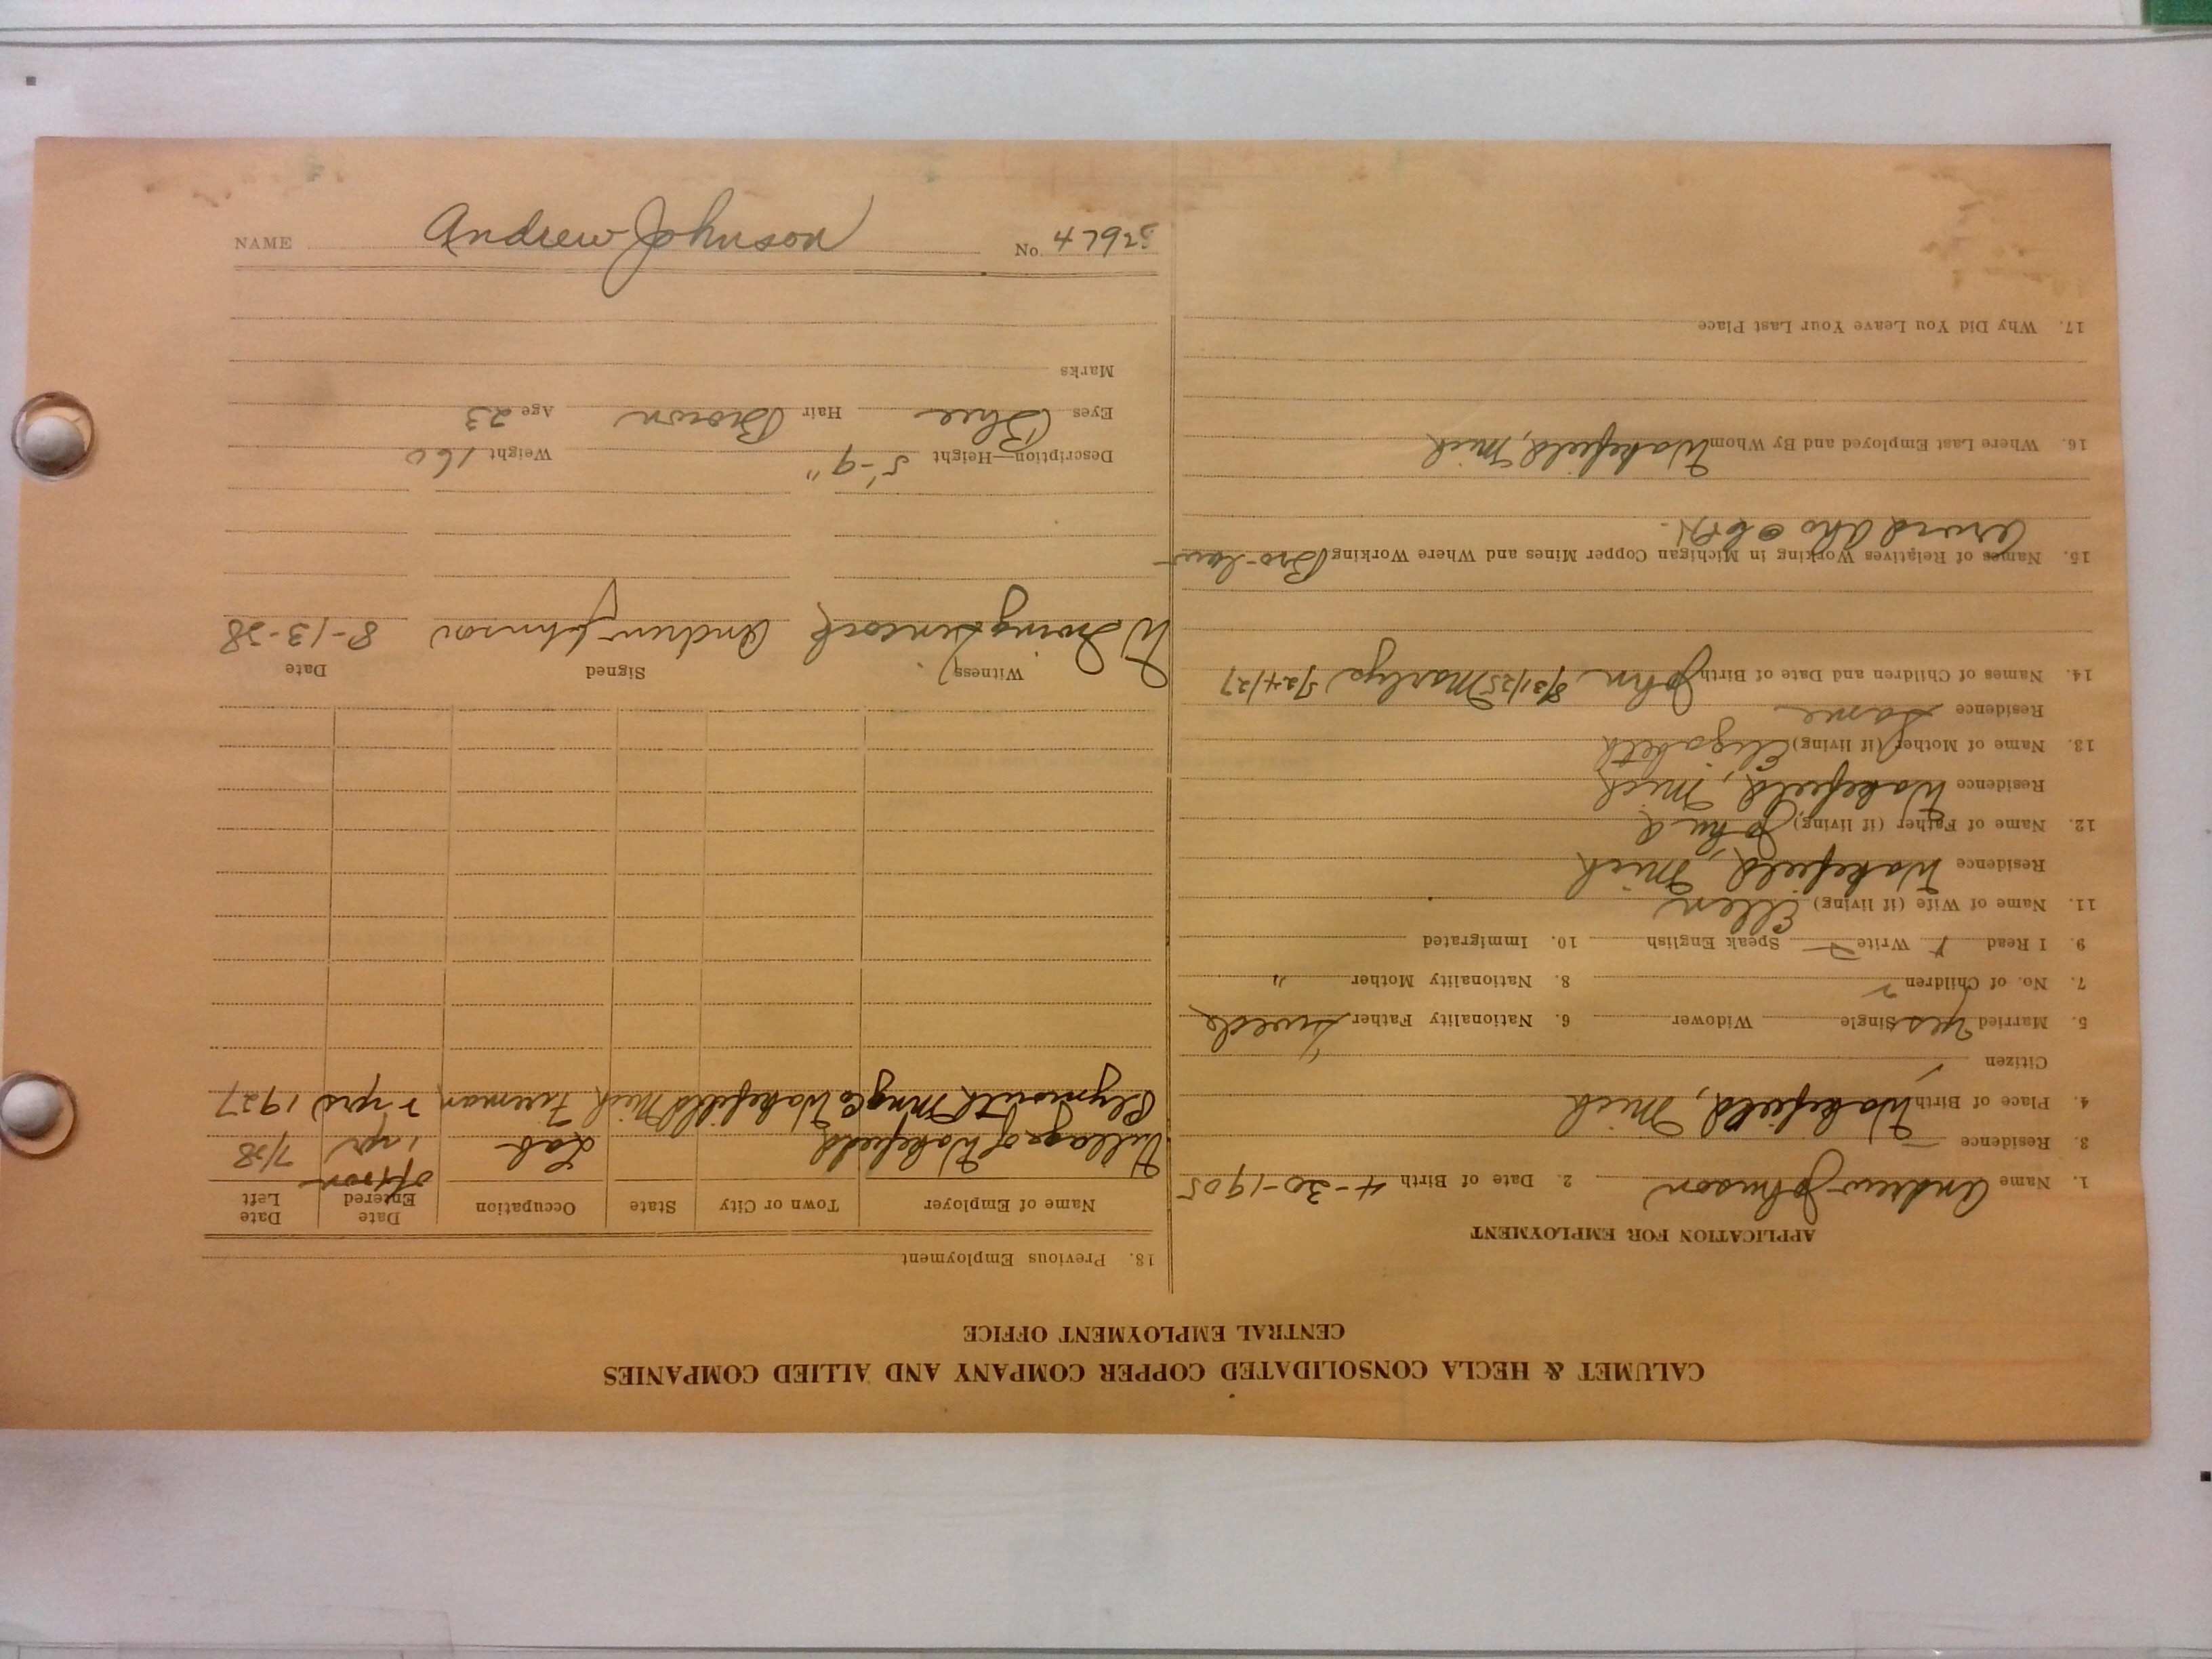 CALUMET & HECLA CONSOLIDATED COPPER COMPANY AND ALLIED COMPANIES
CENTRAL EMPLOYMENT OFFICE
APPLICATION FOR EMPLOYMENT
1. Name Andrew Johnson 2. Date of Birth 4-30-1905
3. Residence
4. Place of Birth Wakefield, Mich
Citizen
5. Married yes Single Widower 6. Nationality Father Swede
7. No. of Children 2 8. Nationality Mother "
9. I Read Write Speak English 10. Immigrated
11. Name of Wife (if living) Ellen
Residence Wakefield, Mich
12. Name of Father (if living) John
Residence Wakefield, Mich
13. Name of Mother (if living) Elizabeth
Residence Same
14. Names of Children and Date of Birth John 8/31/25 Marlys 5/24/27
15. Names of Relatives Working in Michigan Copper Mines and Where Working Bro-law
Arvid Aho
16. Where Last Employed and By Whom Wakefield, Mich
17. Why Did You Leave Your Last Place
18. Previous Employment
Name of Employer Town or City State Occupation Date Entered Date Left
Village of Wakefield Lab 1 yr 7/28
Plymouth Mng Co Wakefield Mich Fireman 2 yrs 1927
Witness Signed Date
W Irving Andrew Johnson 8-13-28
Description—Height 5'-9" Weight 160
Eyes Blue Hair Brown Age 23
Marks
NAME Andrew Johnson No.